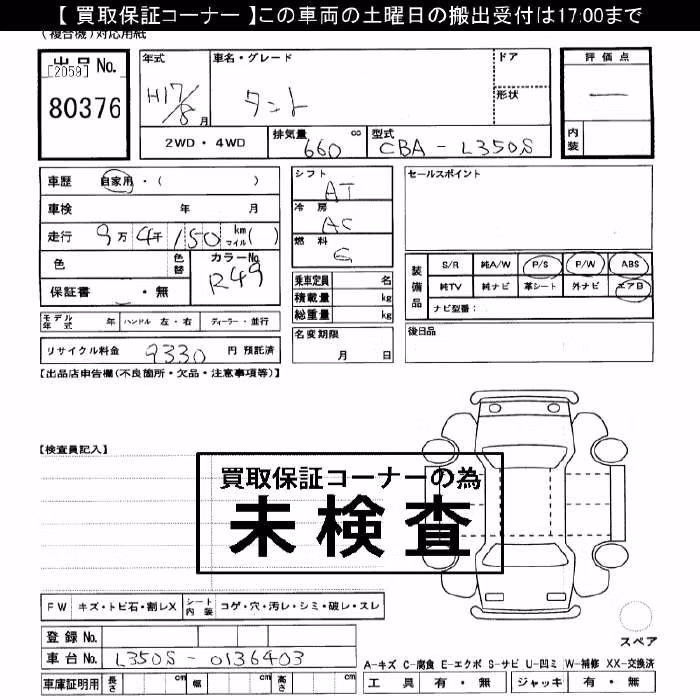 【 買取保証コーナー 】この車両の土曜日の搬出受付は17:00まで
(複合機)対応用紙
出品 No.
[2059]
80376
年式
H17/8 月
車名・グレード
タント
ドア
形状
評価点
—
内装
2WD・4WD
排気量 660 cc
型式 CBA - L350S
車歴 自家用・( )
車検 年 月
走行 9万4千150 km マイル( )
色 色替 カラーNo. R49
保証書 ・無
シフト AT
冷房 AC
燃料 G
乗車定員 名
積載量 kg
総重量 kg
名変期限 月 日
セールスポイント
装備品
S/R 純A/W P/S P/W ABS
純TV 純ナビ 革シート 外ナビ エアB
ナビ型番:
後日品
モデル年式 年 ハンドル 左・右 ディーラー・並行
リサイクル料金 9330 円 預託済
【出品店申告欄(不良箇所・欠品・注意事項等)】
【検査員記入】
買取保証コーナーの為
未検査
FW キズ・トビ石・割レX シート内装 コゲ・穴・汚レ・シミ・破レ・スレ
登録 No.
車台 No. L350S - 0136403
車庫証明用 長さ cm 幅 cm 高さ cm
スペア
A-キズ C-腐食 E-エクボ S-サビ U-凹ミ W-補修 XX-交換済
工具 有・無 ジャッキ 有・無